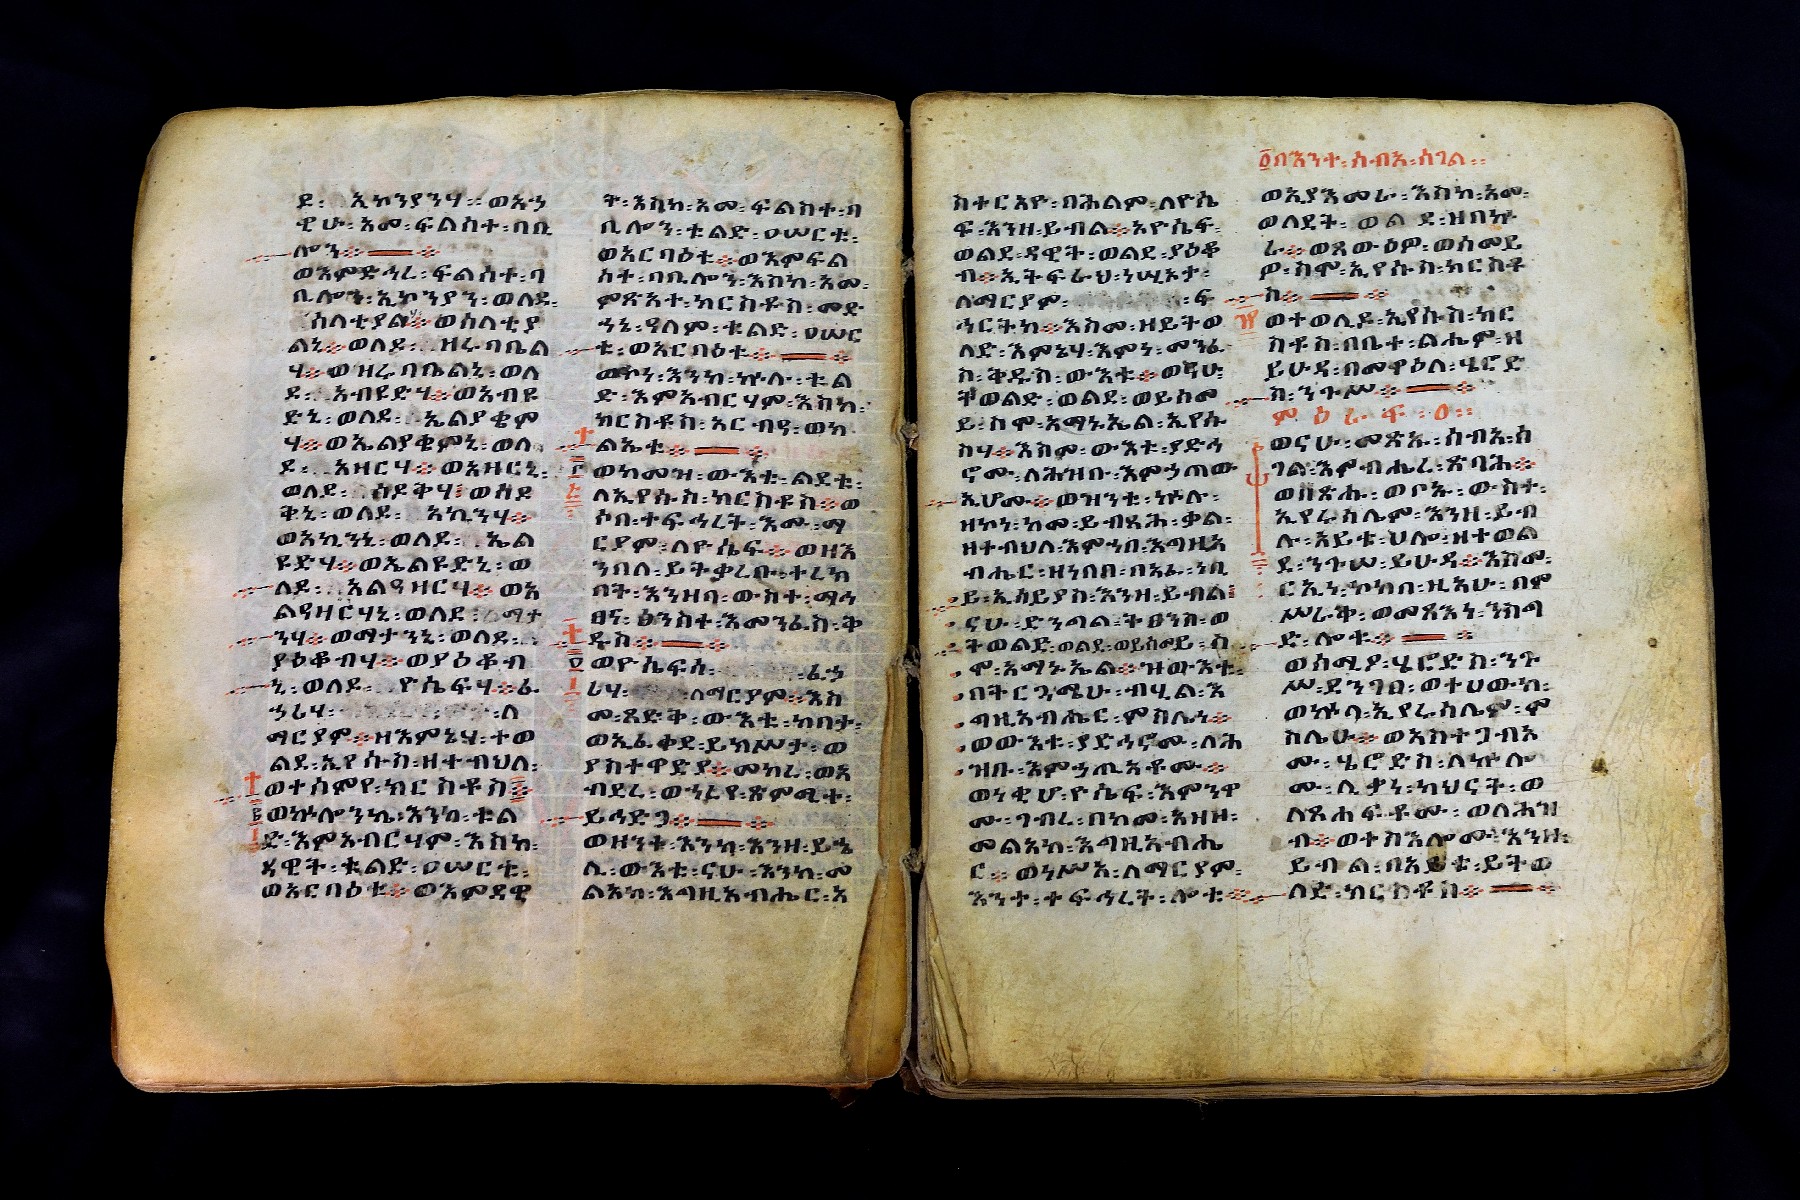 ደ፡ ኢኮንያንሃ። ወአኃ
ዊሁ፡ አመ፡ ፍልሰተ፡ በቢ
ሎን።
ወእምድኅረ፡ ፍልሰተ፡ ባ
ቢሎን፡ ኢኮንያን፡ ወለደ፡
ሰላቲያልሃ። ወሰላቲያ
ልኒ፡ ወለደ፡ ዝሩባቤል
ሃ። ወዝሩባቤልኒ፡ ወለ
ደ፡ አብዩድሃ። ወአብዩ
ድኒ፡ ወለደ፡ ኤልያቄም
ሃ። ወኤልያቄምኒ፡ ወለ
ደ፡ አዛርሃ። ወአዛርኒ፡
ወለደ፡ ሳዶቅሃ፡ ወሳዶ
ቅኒ፡ ወለደ፡ አኪንሃ።
ወአኪንኒ፡ ወለደ፡ ኤል
ዩድሃ። ወኤልዩድኒ፡ ወ
ለደ፡ አልዓዛርሃ። ወአ
ልዓዛርሃኒ፡ ወለደ፡ ማታ
ንሃ። ወማታንኒ፡ ወለደ፡
ያዕቆብሃ። ወያዕቆብ
ኒ፡ ወለደ፡ ዮሴፍሃ። ፈ
ኃሪሃ፡ ለ
ማርያም። ዘእምኔሃ፡ ተወ
ልደ፡ ኢየሱስ፡ ዘተብህለ፡
ወተሰምየ፡ ክርስቶስ።
ወኵሎንኬ፡ እንከ፡ ቱል
ድ፡ እምአብርሃም፡ እስከ፡
ዳዊት፡ ቱልድ፡ ዐሠርቱ፡
ወአርባዕቱ። ወእምዳዊ
ት፡ እስከ፡ አመ፡ ፍልሰተ፡ ባ
ቢሎን፡ ቱልድ፡ ዐሠርቱ፡
ወአርባዕቱ። ወእምፍል
ሰተ፡ ባቢሎን፡ እስከ፡ አመ፡
ምጽአተ፡ ክርስቶስ፡ መድ
ኅኔ፡ ዓለም፡ ቱልድ፡ ዐሠር
ቱ፡ ወአርባዕቱ።
መኮነ፡ እንከ፡ ኵሉ፡ ቱል
ድ፡ እምአብርሃም፡ እስከ፡
ክርስቶስ፡ አርብዓ፡ ወክ
ልኤቱ።
ወከመዝ፡ ውእቱ፡ ልደቱ፡
ለኢየሱስ፡ ክርስቶስ። ወ
ሶበ፡ ተፍኅረት፡ እሙ፡ ማ
ርያም፡ ለዮሴፍ። ወዘእ
ንበለ፡ ይትቃረቡ፡ ተረክ
በት፡ እንዘባ፡ ውስተ፡ ማኅ
ፀና፡ ፅንስተ፡ እመንፈስ፡ ቅ
ዱስ።
ወዮሴፍሰ፡ ፈኃ
ሪሃ፡ ለማርያም። እስ
መ፡ ጻድቅ፡ ውእቱ፡ ካበታ፡
ወኢፈቀደ፡ ይክሥታ፡ ወ
ያስተዋድያ። መከረ፡ ወአ
ብደረ፡ ወኀረየ፡ ጽምሚተ፡
ይኅድጋ።
ወዘንተ፡ እንከ፡ እንዘ፡ ይኄ
ሊ፡ ውእቱ፡ ናሁ፡ እንከ፡ መ
ልአከ፡ እግዚአብሔር፡ አ
ስተርአዮ፡ በሕልም፡ ለዮሴ
ፍ፡ እንዘ፡ ይብል። አዮሴፍ፡
ወልደ፡ ዳዊት፡ ወልደ፡ ያዕቆ
ብ። ኢትፍራህ፡ ነሢኦታ፡
ለማርያም፡ ፍ
ኅርትከ። እስመ፡ ዘይትወ
ለድ፡ እምኔሃ፡ እምነ፡ መንፈ
ስ፡ ቅዱስ፡ ውእቱ። ወናሁ፡
ትወልድ፡ ወልደ፡ ወይሰመ
ይ፡ ስሞ፡ አማኑኤል፡ ኢየሱ
ስሃ፡ እስመ፡ ውእቱ፡ ያድኅ
ኖሙ፡ ለሕዝቡ፡ እምኃጢው
ኢሆሙ። ወዝንቱ፡ ኵሉ፡
ዘኮነ፡ ከመ፡ ይብጻሕ፡ ቃል፡
ዘተብህለ፡ እምኀበ፡ እግዚአ
ብሔር፡ ዘነበበ፡ በአፈ፡ ነቢ
ይ፡ ኢሳይያስ፡ እንዘ፡ ይብል፡
ናሁ፡ ድንግል፡ ትፀንስ፡ ወ
ትወልድ፡ ወልደ፡ ወይሰመይ፡ ስ
ሞ፡ አማኑኤል። ዝውእቱ፡
በትርጓሜሁ፡ ብሂል፡ እ
ግዚአብሔር፡ ምስሌነ።
ወውእቱ፡ ያድኅኖሙ፡ ለሕ
ዝቡ፡ እምኃጢአቶሙ።
ወነቂሆ፡ ዮሴፍ፡ እምንዋ
ሙ፡ ገብረ፡ በከመ፡ አዘዘ፡
መልአከ፡ እግዚአብሔ
ር። ወነሥአ፡ ለማርያም፡
እንተ፡ ተፍኅረት፡ ሎቱ።
፩በእንተ፡ ሰብአ፡ ሰገል።
ወኢያእመራ፡ እስከ፡ አመ፡
ወለደት፡ ወልደ፡ ዘበኵ
ራ። ወጸውዖዎ፡ ወሰመይ
ዎ፡ ስሞ፡ ኢየሱስ፡ ክርስቶ
ስ።
ወተወሊዶ፡ ኢየሱስ፡ ክር
ስቶስ፡ በቤተ፡ ልሔም፡ ዘ
ይሁዳ፡ በመዋዕለ፡ ሄሮድ
ስ፡ ንጉሥ።
ምዕራፍ፡ ዐ።
ወናሁ፡ መጽኡ፡ ሰብአ፡ ሰ
ገል፡ እምብሔረ፡ ጽባሕ።
ወበጽሑ፡ ወቦኡ፡ ውስተ፡
ኢየሩሳሌም፡ እንዘ፡ ይብ
ሉ፡ አይቴ፡ ሀሎ፡ ዘተወል
ደ፡ ንጉሠ፡ ይሁዳ። እስመ፡
ርኢነ፡ ኮከበ፡ ዚአሁ፡ በም
ሥራቅ፡ ወመጻእነ፡ ንስግ
ድ፡ ሎቱ።
ወሰሚዖ፡ ሄሮድስ፡ ንጉ
ሥ፡ ደንገፀ፡ ወተሀውከ፡
ወኵላ፡ ኢየሩሳሌም፡ ም
ስሌሁ። ወአስተጋብአ
ሙ፡ ሄሮድስ፡ ለኵሎ
ሙ፡ ሊቃነ፡ ካህናት፡ ወ
ለጸሐፍቶሙ፡ ወለሕዝ
ብ። ወተስእሎሙ፡ እንዘ፡
ይብል፡ በአይቴ፡ ይትወ
ለድ፡ ክርስቶስ።